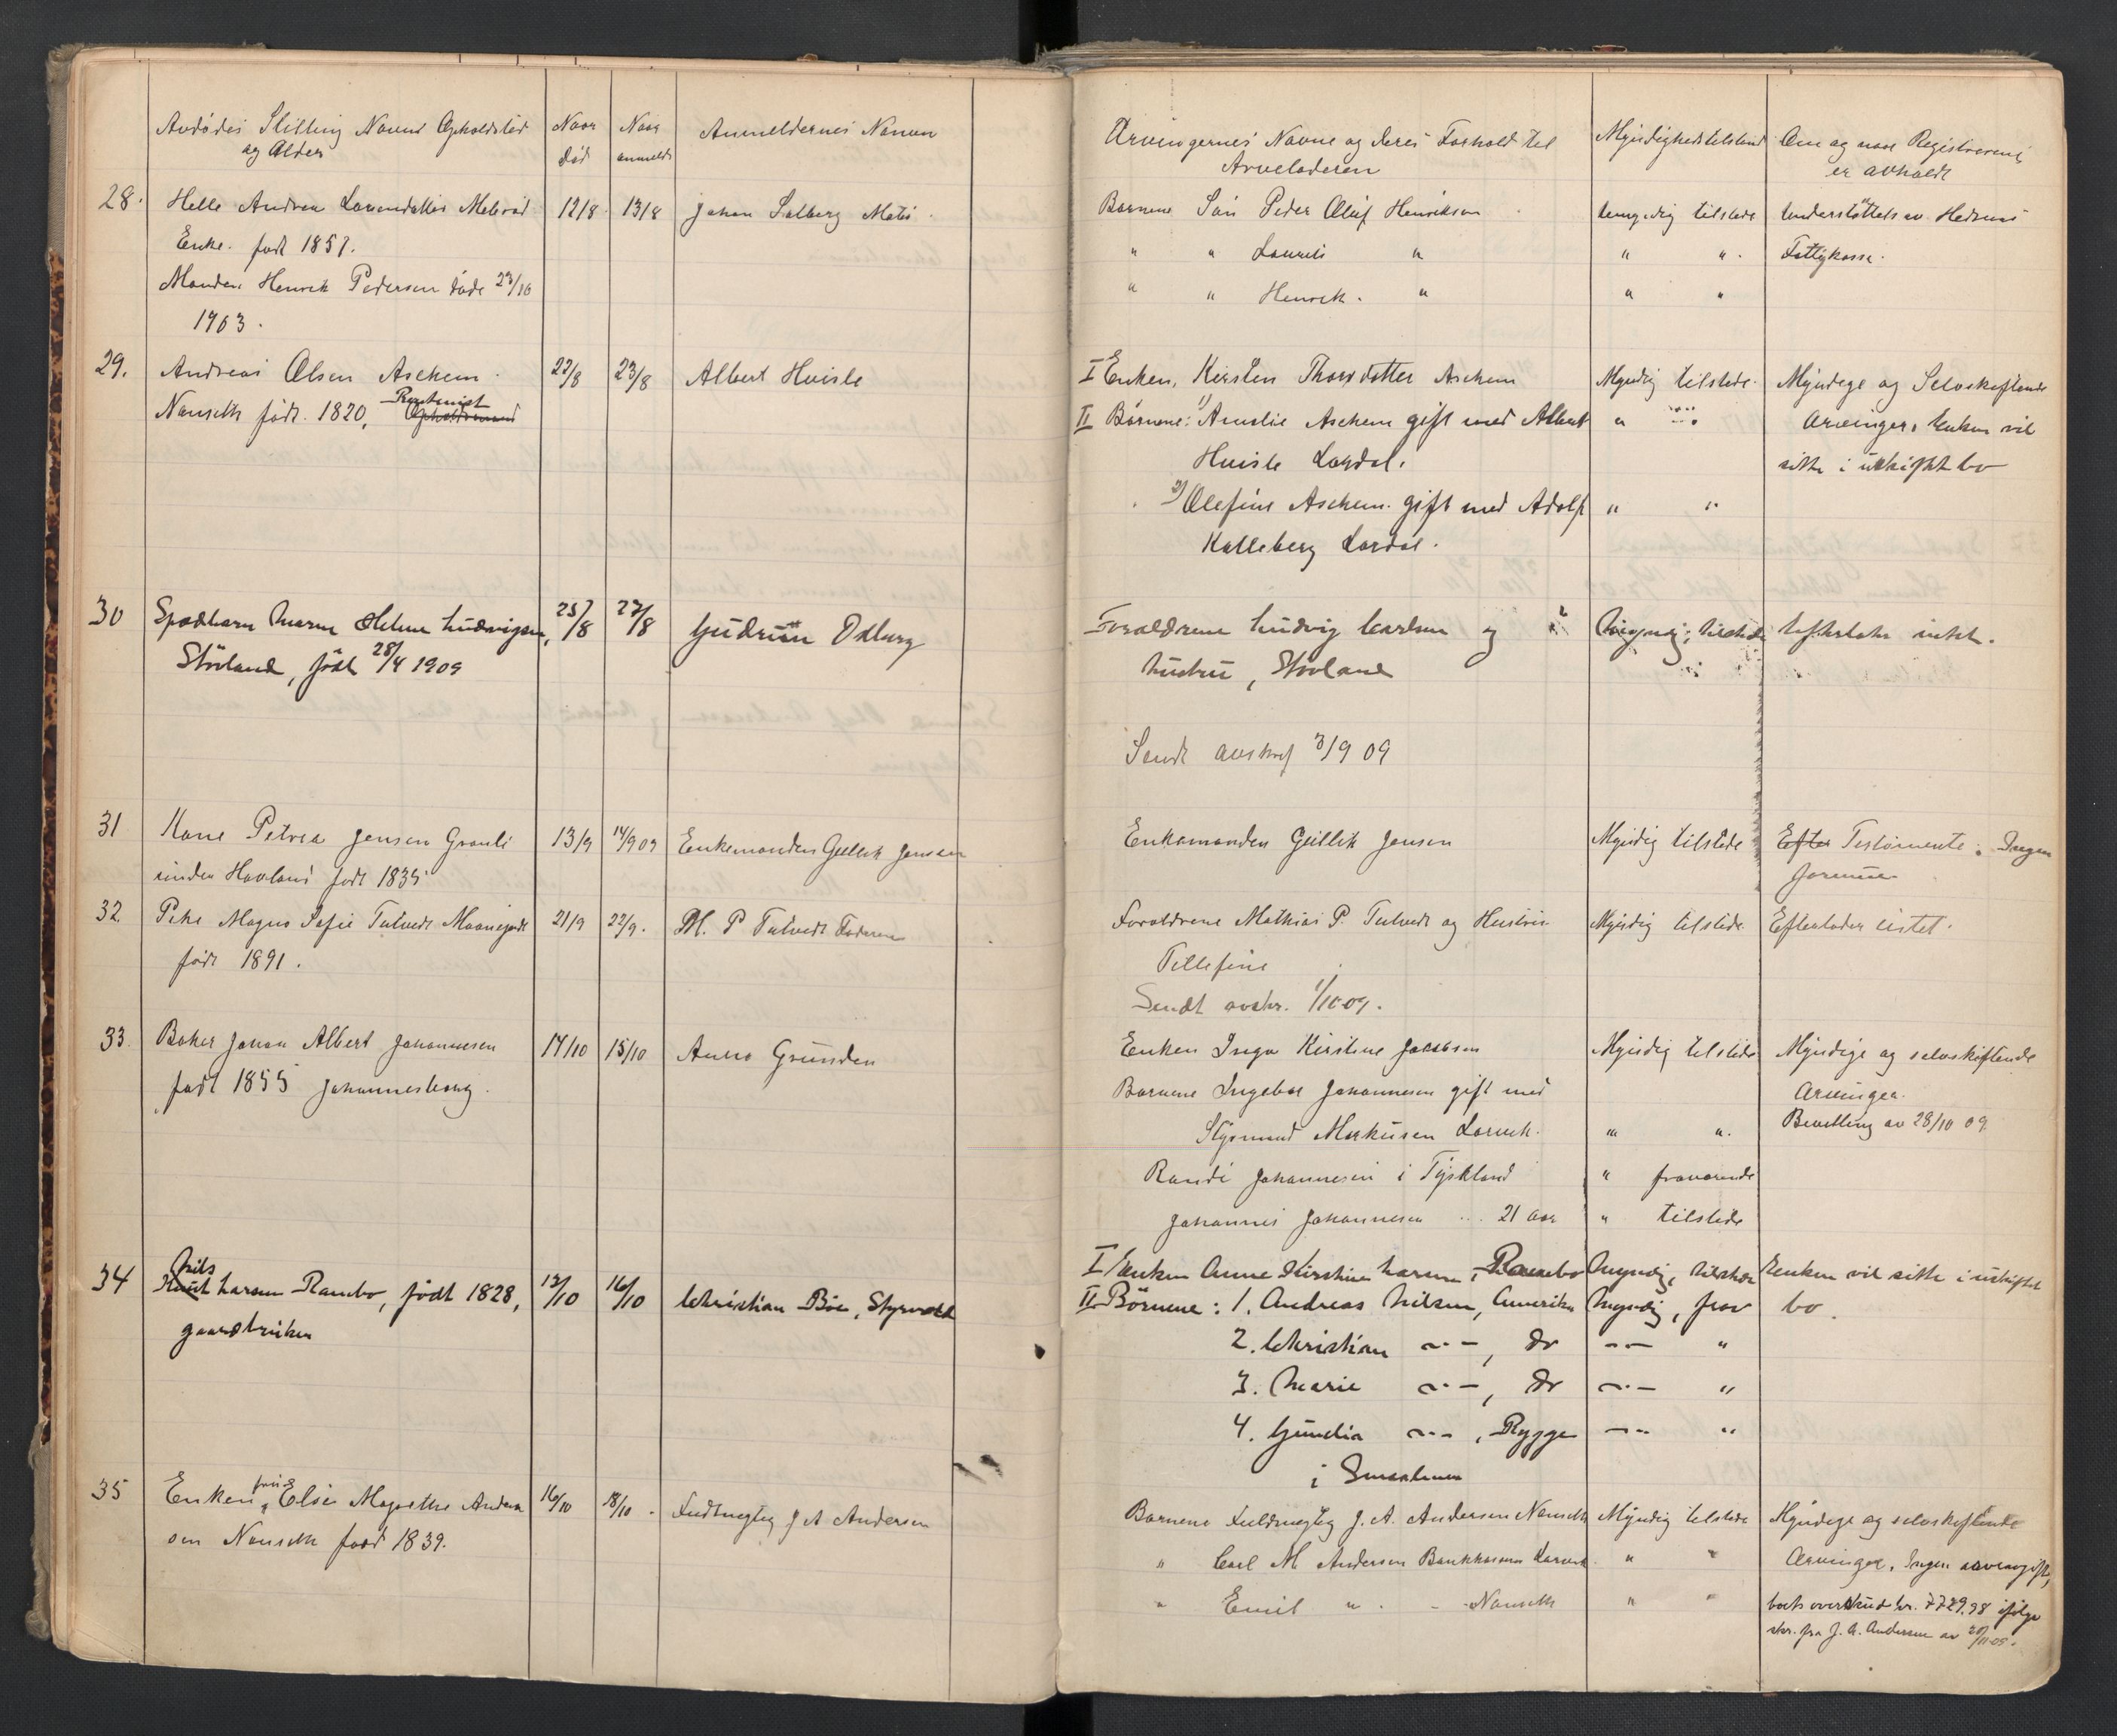 Avdødes Stilling Navn Opholdsted
og Alder
Naar
død
Naar
anmeldt
Anmeldernes Navn
28.
Helle Andrea Lavendatter Melerød
Enke. født 1857.
Manden Henrik Pedersen døde 23/10
1903.
12/8
13/8
Johan Salberg
29.
Andreas Olsen Askhem
Nanseth født. 1820, Rentenist
22/8
23/8
Albert Hvisle
30
Spædbarn Marm Helene Ludvigsen,
Stovland, født 28/4 1909
25/8
27/8
Gudrun Odberg
31
Kone Petrea Jensen Granli
under Hovland født 1835
13/9
14/9 09
Enkemanden Gullik Jensen
32
Pike Magna Sofie Tutvedt
født 1891.
21/9
22/9.
M. P Tutvedt Faderen
33.
Baker Johan Albert Johannesen
født 1855 Johannesborg.
14/10
15/10
Anna Grunden
34
Nils
Larsen Rambo, født 1828,
gaardbruker
13/10
16/10
Christian Bøe, Styrvold
35
Enken fru Else Magrethe Ander-
sen Nanseth født 1839.
16/10
18/10.
Fuldmegtig J A Andersen
Arvingernes Navne og deres Forhold til
Arveladeren
Myndighedstilstand
Om og naar Registrering
er avholdt
Barnene Søn Peder Oluf Henriksen
umyndig tilstede
Understøttet av Hedrums
" " Laurits "
" ".
Fattigkasse.
" " Henrik. "
" "
I Enken, Kirsten Thorsdatter Askhem
Myndig tilstede.
Myndige og Selvskiftende
II Børnene: 1) Amalie Askhem gift med Albert
Arvinger. Enken vil
Hvisle Lardal.
sitte i uskiftet bo
2) Olefine Askhem gift med Adolf
" "
Kalleberg Lardal.
Forældrene Ludvig Carlsen og
Myndig, tilstede
Efterlater intet.
hustru, Stovland
Sendt avskrf 3/9 09
Enkemanden Gullik Jensen
Myndig tilstede
Efter Testamente. Ingen
Formue
Forældrene Mathias P. Tutvedt og Hustru
Myndig tilstede
Efterlader intet.
Tellefine
Sendt avskr. 1/10 09.
Enken Inga Kirstine Jacobsen
Myndig tilstede
Myndige og selvskiftende
Barnene Ingebor Johannesen gift med
Arvinger.
Styrmand Markusen Larvik.
" ".
Bevilling av 28/10 09.
Randi Johannesen i Tyskland
" fraværende
Johannes Johannesen 21 aar
" tilstede
I Enken Anne Kirstine Larsen, Rambo
Myndig, tilstede
Enken vil sitte i uskiftet
II Børnene: 1. Andreas Nilsen, Amerika
Myndig, frav
bo.
2. Christian —"—, do
—"— "
3. Marie —"—, do
—"— "
4. Gundia —"—, Rygge
—"— "
i Smaalenene
Barnene Fuldmegtig J. A. Andersen Nanseth
Myndig tilstede
Myndige og selvskiftende
" Carl M Andersen Bankkasserer Larvik.
" "
Arvinger. Ingen arveavgift,
" Emil " . - Nanseth
" "
boets overskud kr. 7729.98 ifølge
skr. fra J. A. Andersen av 20/11-09.